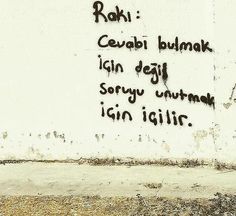 Rakı:
Cevabı bulmak
için değil
soruyu unutmak
için içilir.